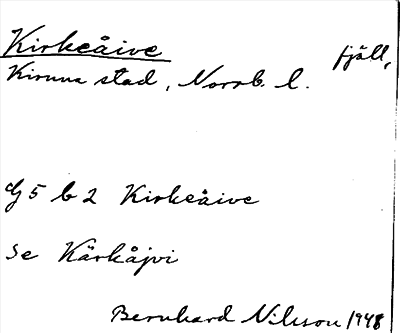 Kirkeåive fjäll,
Kiruna stad, Norrb. l.
G5 b2 Kirkeåive
Se Kärkåjvi
Bernhard Nilsson 1948